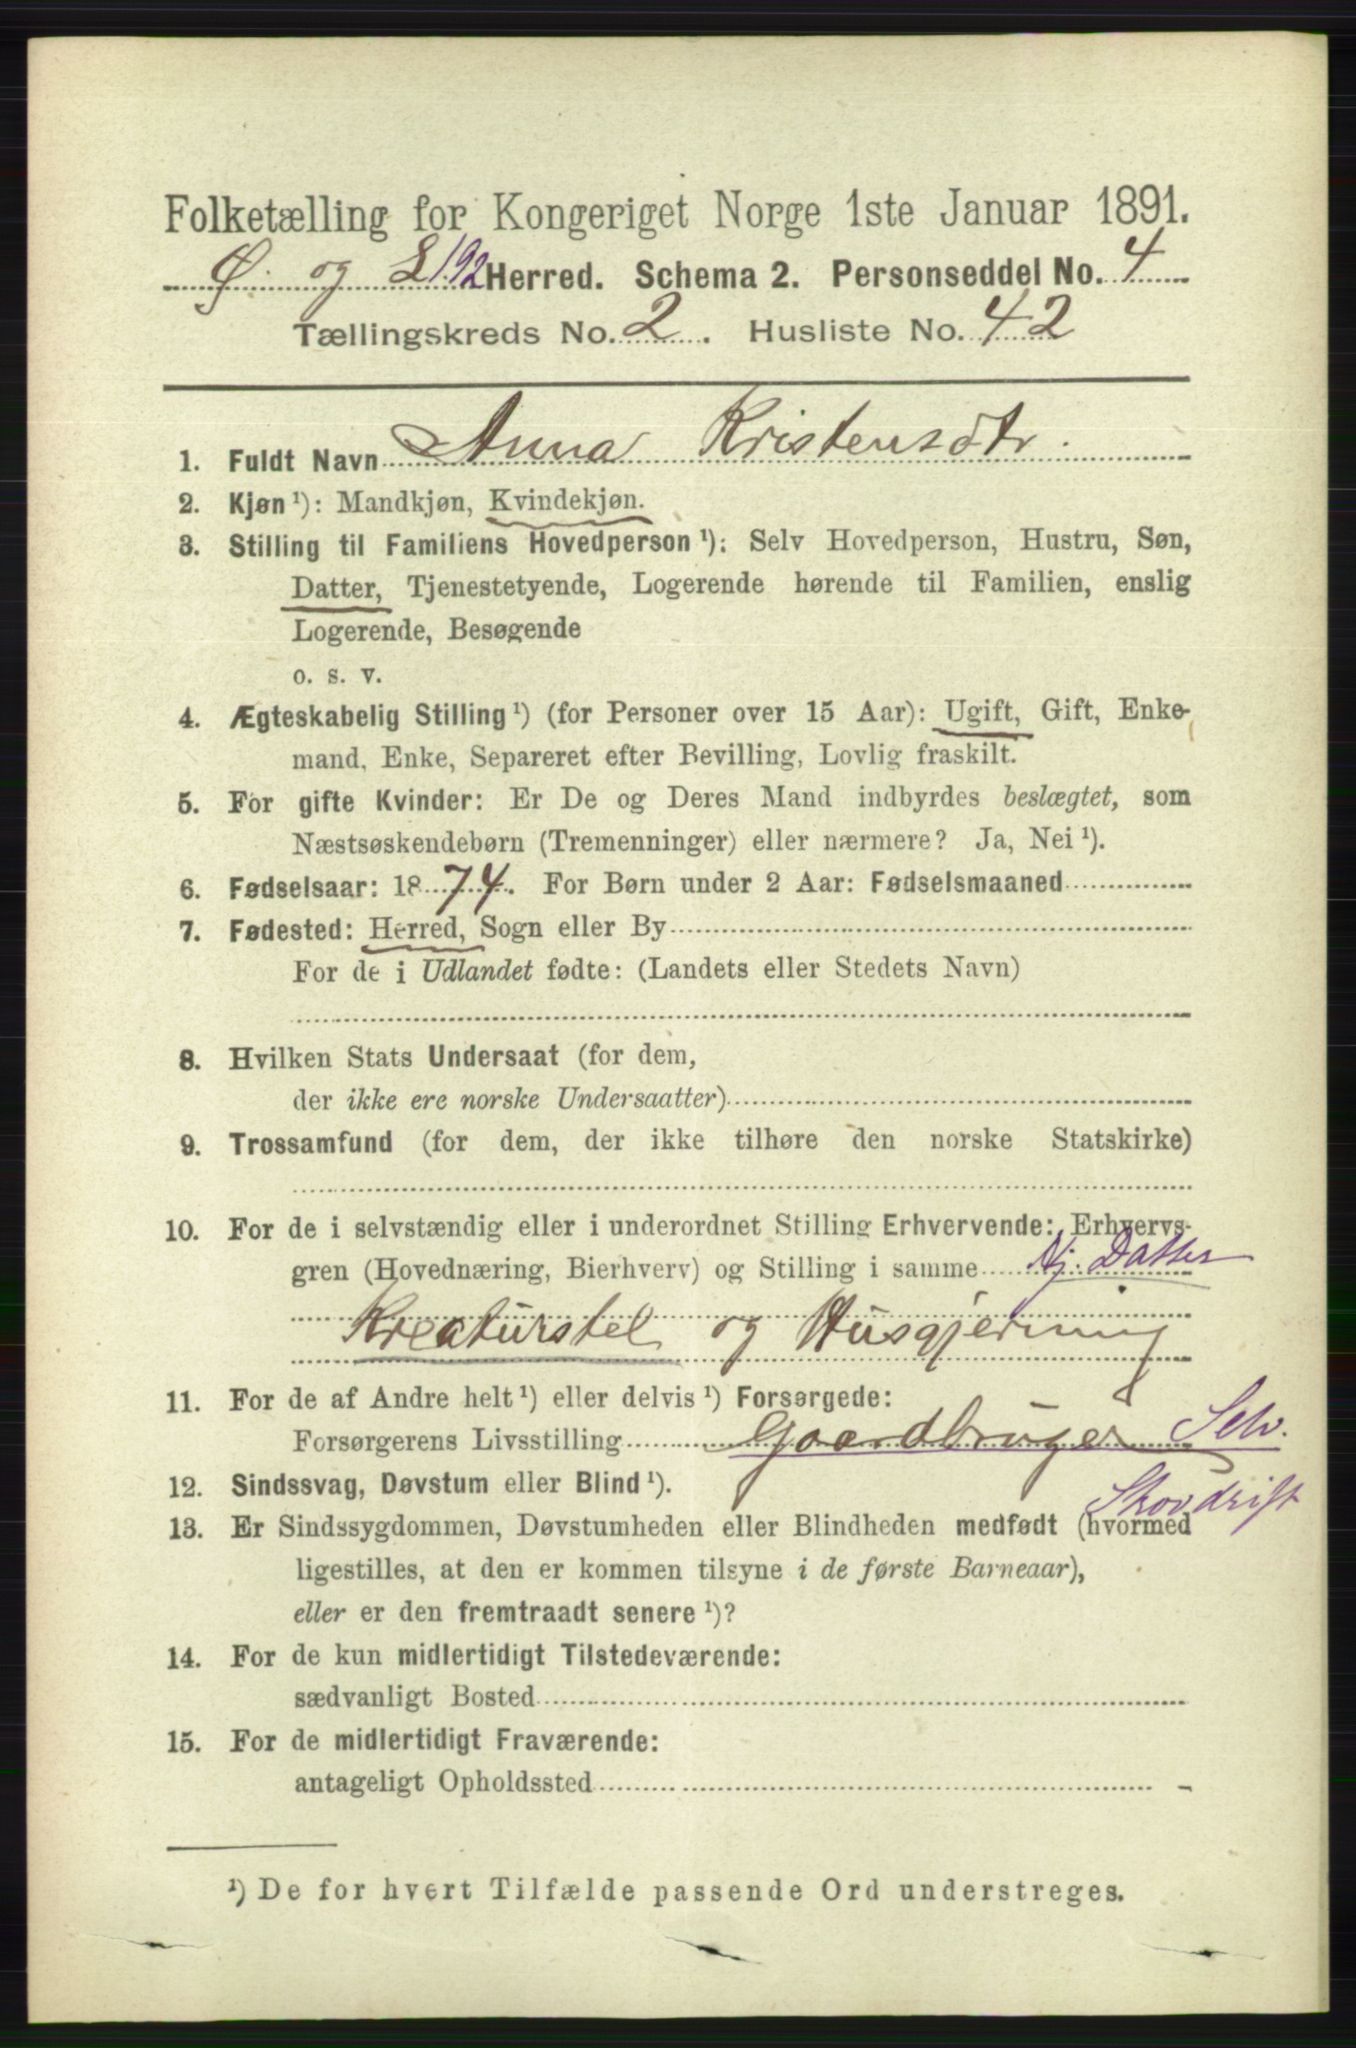 Folketælling for Kongeriget Norge 1ste Januar 1891.
Ø. og L 192 Herred. Schema 2. Personseddel No. 4
Tællingskreds No. 2. Husliste No. 42
1. Fuldt Navn Anna Kristensdtr.
2. Kjøn ¹): Mandkjøn, Kvindekjøn.
3. Stilling til Familiens Hovedperson ¹): Selv Hovedperson, Hustru, Søn,
Datter, Tjenestetyende, Logerende hørende til Familien, enslig
Logerende, Besøgende
o. s. v.
4. Ægteskabelig Stilling ¹) (for Personer over 15 Aar): Ugift, Gift, Enke-
mand, Enke, Separeret efter Bevilling, Lovlig fraskilt.
5. For gifte Kvinder: Er De og Deres Mand indbyrdes beslægtet, som
Næstsøskendebørn (Tremenninger) eller nærmere? Ja, Nei ¹).
6. Fødselsaar: 1874. For Børn under 2 Aar: Fødselsmaaned
7. Fødested: Herred, Sogn eller By
For de i Udlandet fødte: (Landets eller Stedets Navn)
8. Hvilken Stats Undersaat (for dem,
der ikke ere norske Undersaatter)
9. Trossamfund (for dem, der ikke tilhøre den norske Statskirke)
10. For de i selvstændig eller i underordnet Stilling Erhvervende: Erhvervs-
gren (Hovednæring, Bierhverv) og Stilling i samme Hj. Datter
Kreaturstel og Husgjerning
11. For de af Andre helt ¹) eller delvis ¹) Forsørgede:
Forsørgerens Livsstilling Gaardbruger Selv.
12. Sindssvag, Døvstum eller Blind ¹).
Skovdrift
13. Er Sindssygdommen, Døvstumheden eller Blindheden medfødt (hvormed
ligestilles, at den er kommen tilsyne i de første Barneaar),
eller er den fremtraadt senere ¹)?
14. For de kun midlertidigt Tilstedeværende:
sædvanligt Bosted
15. For de midlertidigt Fraværende:
antageligt Opholdssted
¹) De for hvert Tilfælde passende Ord understreges.